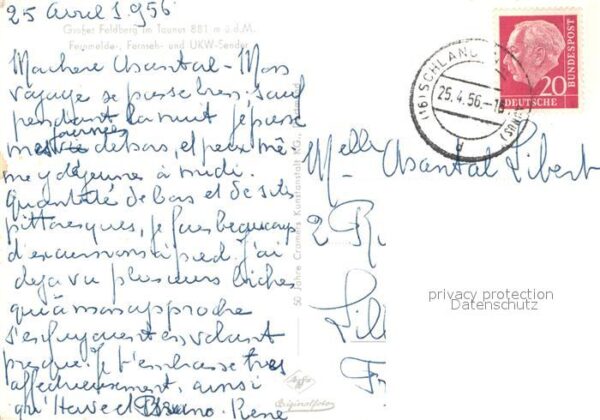 25 Avril 1956
Großer Feldberg im Taunus 881 m ü.d.M.
Fernmelde-, Fernseh- und UKW-Sender
Ma chere Chantal - Mon
voyage se passe tres bien; sauf
pendant la nuit je passe
mes journées dehors, et peux mê
me y déjeuner à midi.
Quantité de bois et de sites
pittoresques, je fais beaucoup
d'excursions à pied. j'ai
deja vu plusieurs biches
qui à mon approche
s'enfuyaient en volant
presque. Je t'embrasse tres
affectueusement, ainsi
qu'Herve et Bruno. René
50 Jahre Cramers Kunstanstalt KG.,
Agfa
Originalfoto
(16) SCHLANG
25.4.56.-18
d
20
DEUTSCHE
BUNDESPOST
Melle Chantal Libert
2 R
Lill
Fr
privacy protection
Datenschutz